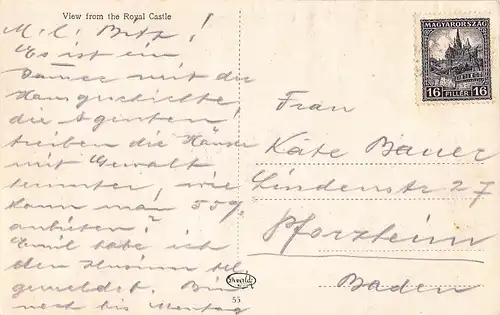 View from the Royal Castle
M. l. !
Es ist ein
Jammer mit der
Hausgeschichte!
die Agenten
treiben die Häuser
mit Gewalt
runter, wie
kann man 55%
anbieten?
Emil habe ich
den
gemeldet. Bin
bis Montag
MAGYARORSZÁG
16 FILLÉR 16
Frau
Käte Bauer
Lindenstr 27
Pforzheim
Baden
55